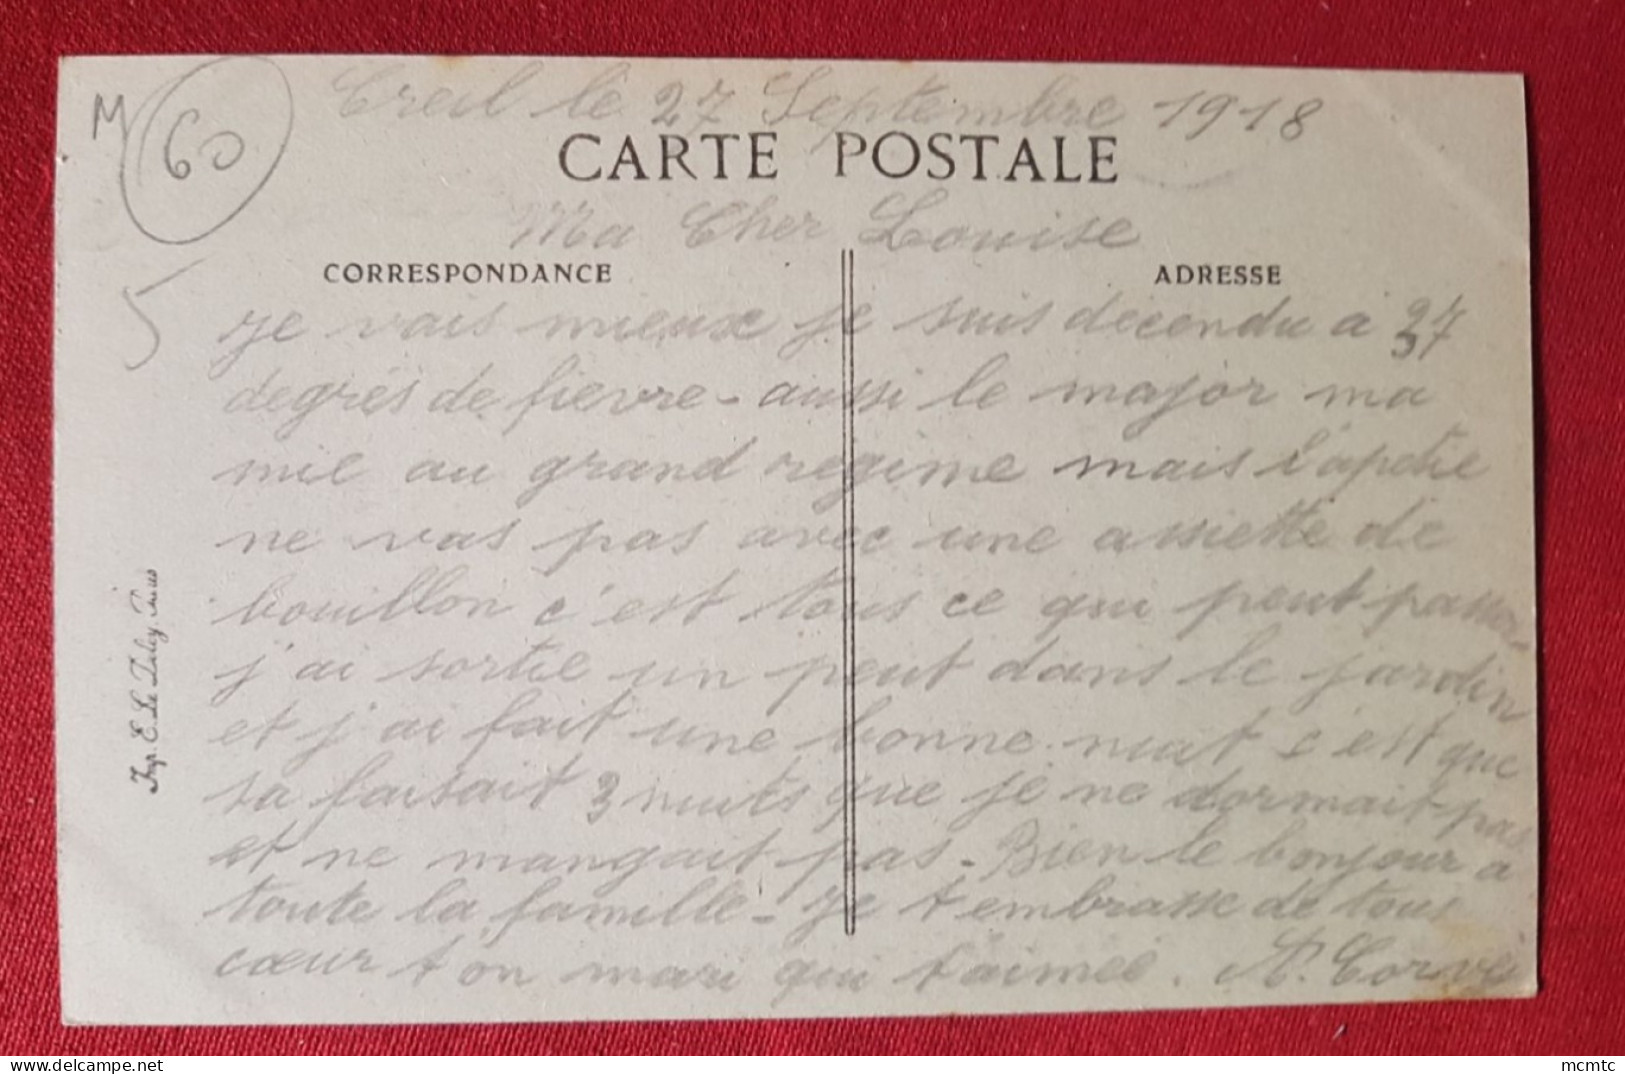 Creil le 27 Septembre 1918
M 60
CARTE POSTALE
Ma Cher Louise
CORRESPONDANCE ADRESSE
5
Je vais mieux je suis décendu a 37
degrés de fievre - aussi le major ma
mie au grand regime mais l'apétie
ne vas pas avec une assiette de
bouillon c'est tous ce qui peut passer
j'ai sortie un peut dans le jardin
et j'ai fait une bonne nuit c'est que
sa faisait 3 nuits que je ne dormait pas
et ne mangait pas - Bien le bonjour a
toute la famille - Je t embrasse de tous
cœur t on mari qui t'aimee. A. Corvei
Imp. E. Le Deley, Paris
mcmtc